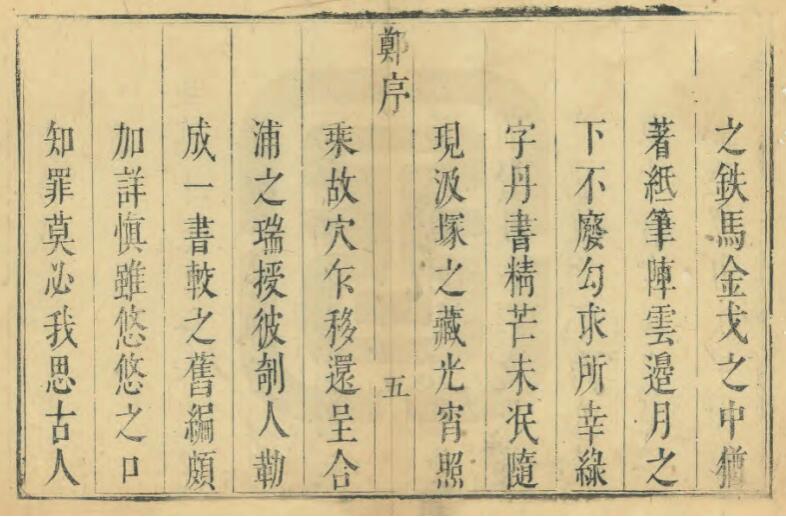 之鉄馬金戈之中猶
著紙筆陣雲邉月之
下不廢勾求所幸綠
字丹書精芒未泯隨
現汲塚之藏光宵照
鄭序
五
乘故穴乍移還呈合
浦之瑞授彼剞人勒
成一書較之舊編頗
加詳慎雖悠悠之口
知罪莫必我思古人